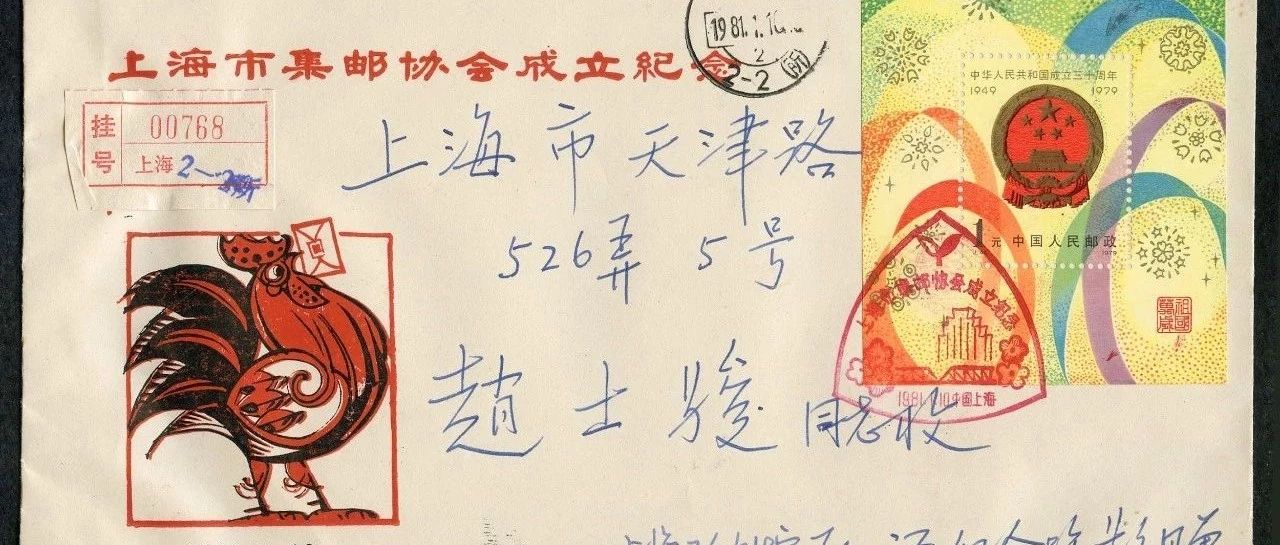 上海市集邮协会成立纪念
1981.1.10
2-2
挂号
00768
上海 2
上海市天津路
526弄 5号
趙士骏 同志收
中华人民共和国成立三十周年
1949 1979
1元 中国人民邮政
1979
祖國萬歲
上海市集邮协会成立纪念
1981.1.10 中国上海